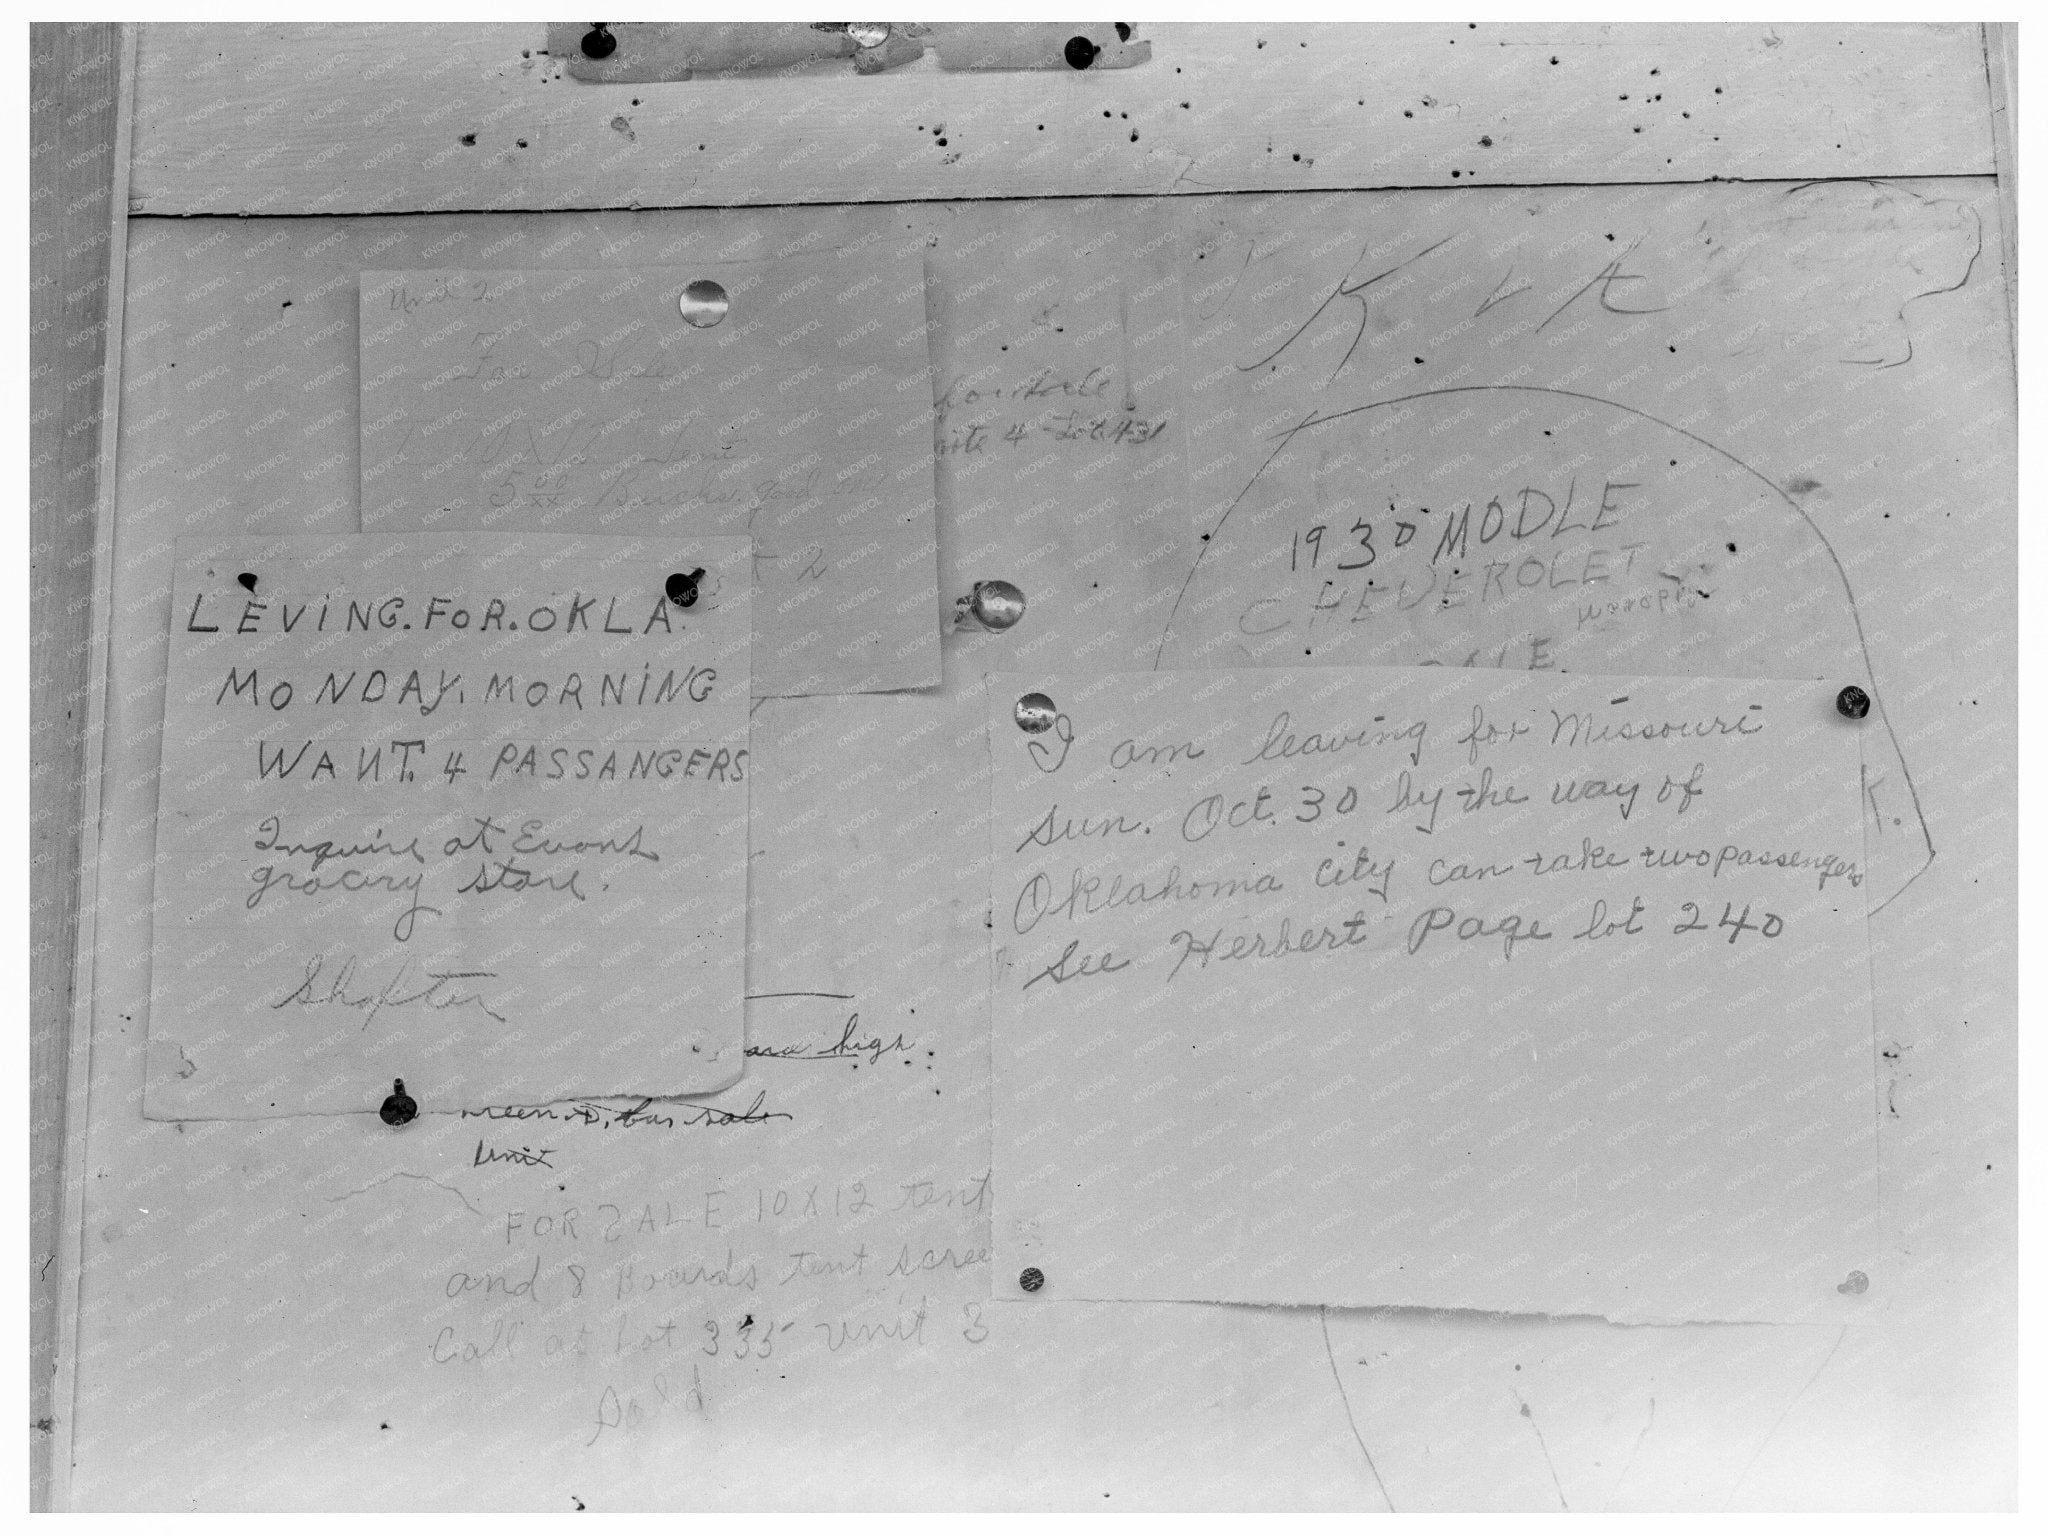 Unit 2
For Sale
10 X 12 Tent
5 00/xx Bucks. good one
2
for sale
4 Lot 431
1930 MODLE
CHEVEROLET
LEVING. FOR. OKLA.
MONDAY. MORNING
WANT. 4 PASSANGERS
Inquire at Evans
grocery store.
Shafter
I am leaving for Missouri
Sun. Oct. 30 by the way of
Oklahoma city can take two passengers
See Herbert Page lot 240
K.
high
for sale
Unit
FOR SALE 10 X 12 tent
and 8 Boards tent scree
Call at Lot 335 unit 3
Sold